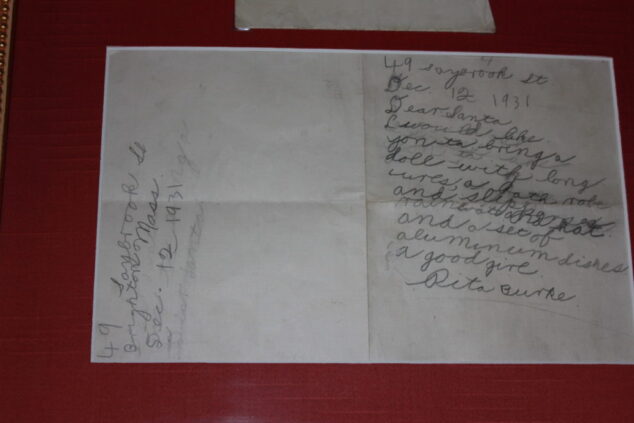 49
Saybrook St
Brighton Mass.
Dec. 12 1931
49 Saybrook st
Dec. 12 1931
Dear Santa
I would like
you to bring a
doll with long
a bath robe
and slippers
raincoat hat
and a set of
alumunum dishes
a good girl.
Rita Burke